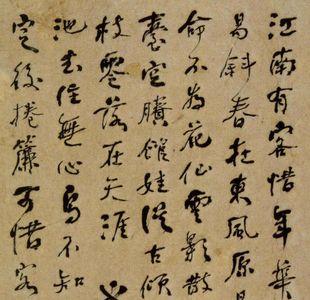 江南有客惜年華
易斜春在東風原是
命不為花仙雲影散
囊空賸館娃從古傾
枝零落在天涯
池去住無心鳥不知
定後捲簾可惜客